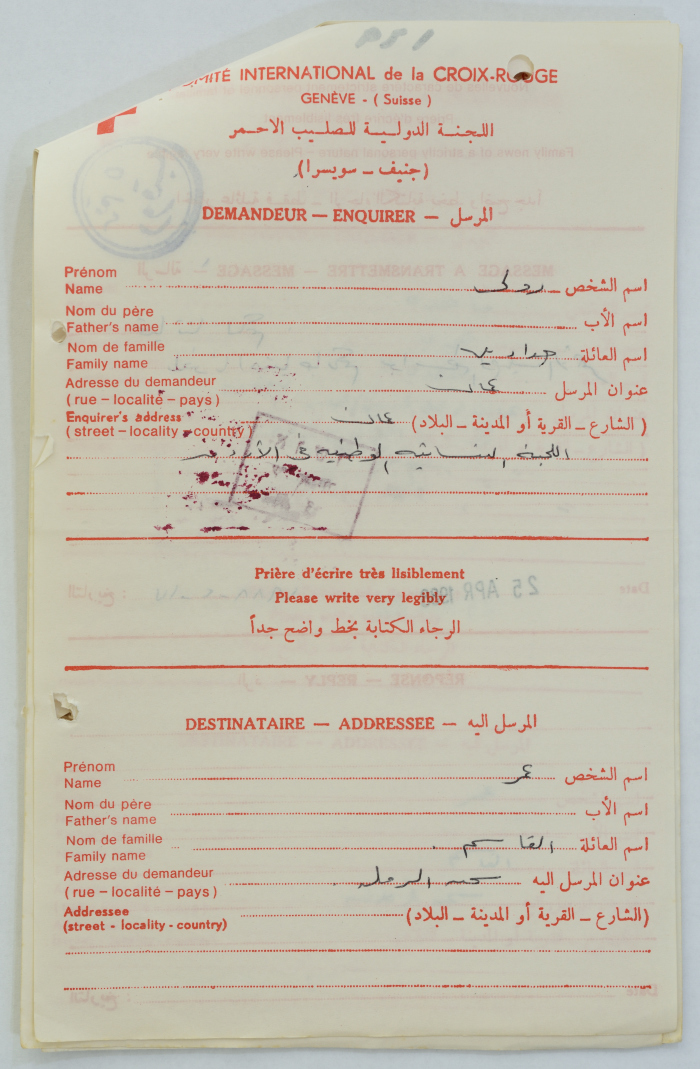 COMITÉ INTERNATIONAL de la CROIX-ROUGE
GENÈVE - ( Suisse )
اللجنة الدولية للصليب الاحمر
(جنيف - سويسرا)
DEMANDEUR — ENQUIRER — المرسل
Prénom
Name اسم الشخص
Nom du père
Father's name اسم الأب
Nom de famille
Family name اسم العائلة
Adresse du demandeur
(rue – localité – pays) عنوان المرسل عمان
Enquirer's address
(street – locality – country) (الشارع - القرية أو المدينة - البلاد) عمان
اللجنة النسائية الوطنية في الأردن
Prière d'écrire très lisiblement
Please write very legibly
الرجاء الكتابة بخط واضح جداً
25 APR
DESTINATAIRE — ADDRESSEE — المرسل اليه
Prénom
Name اسم الشخص عمر
Nom du père
Father's name اسم الأب
Nom de famille
Family name اسم العائلة القاسم
Adresse du demandeur
(rue – localité – pays) عنوان المرسل اليه سجن الرملة
Addressee
(street - locality - country) (الشارع - القرية أو المدينة - البلاد)